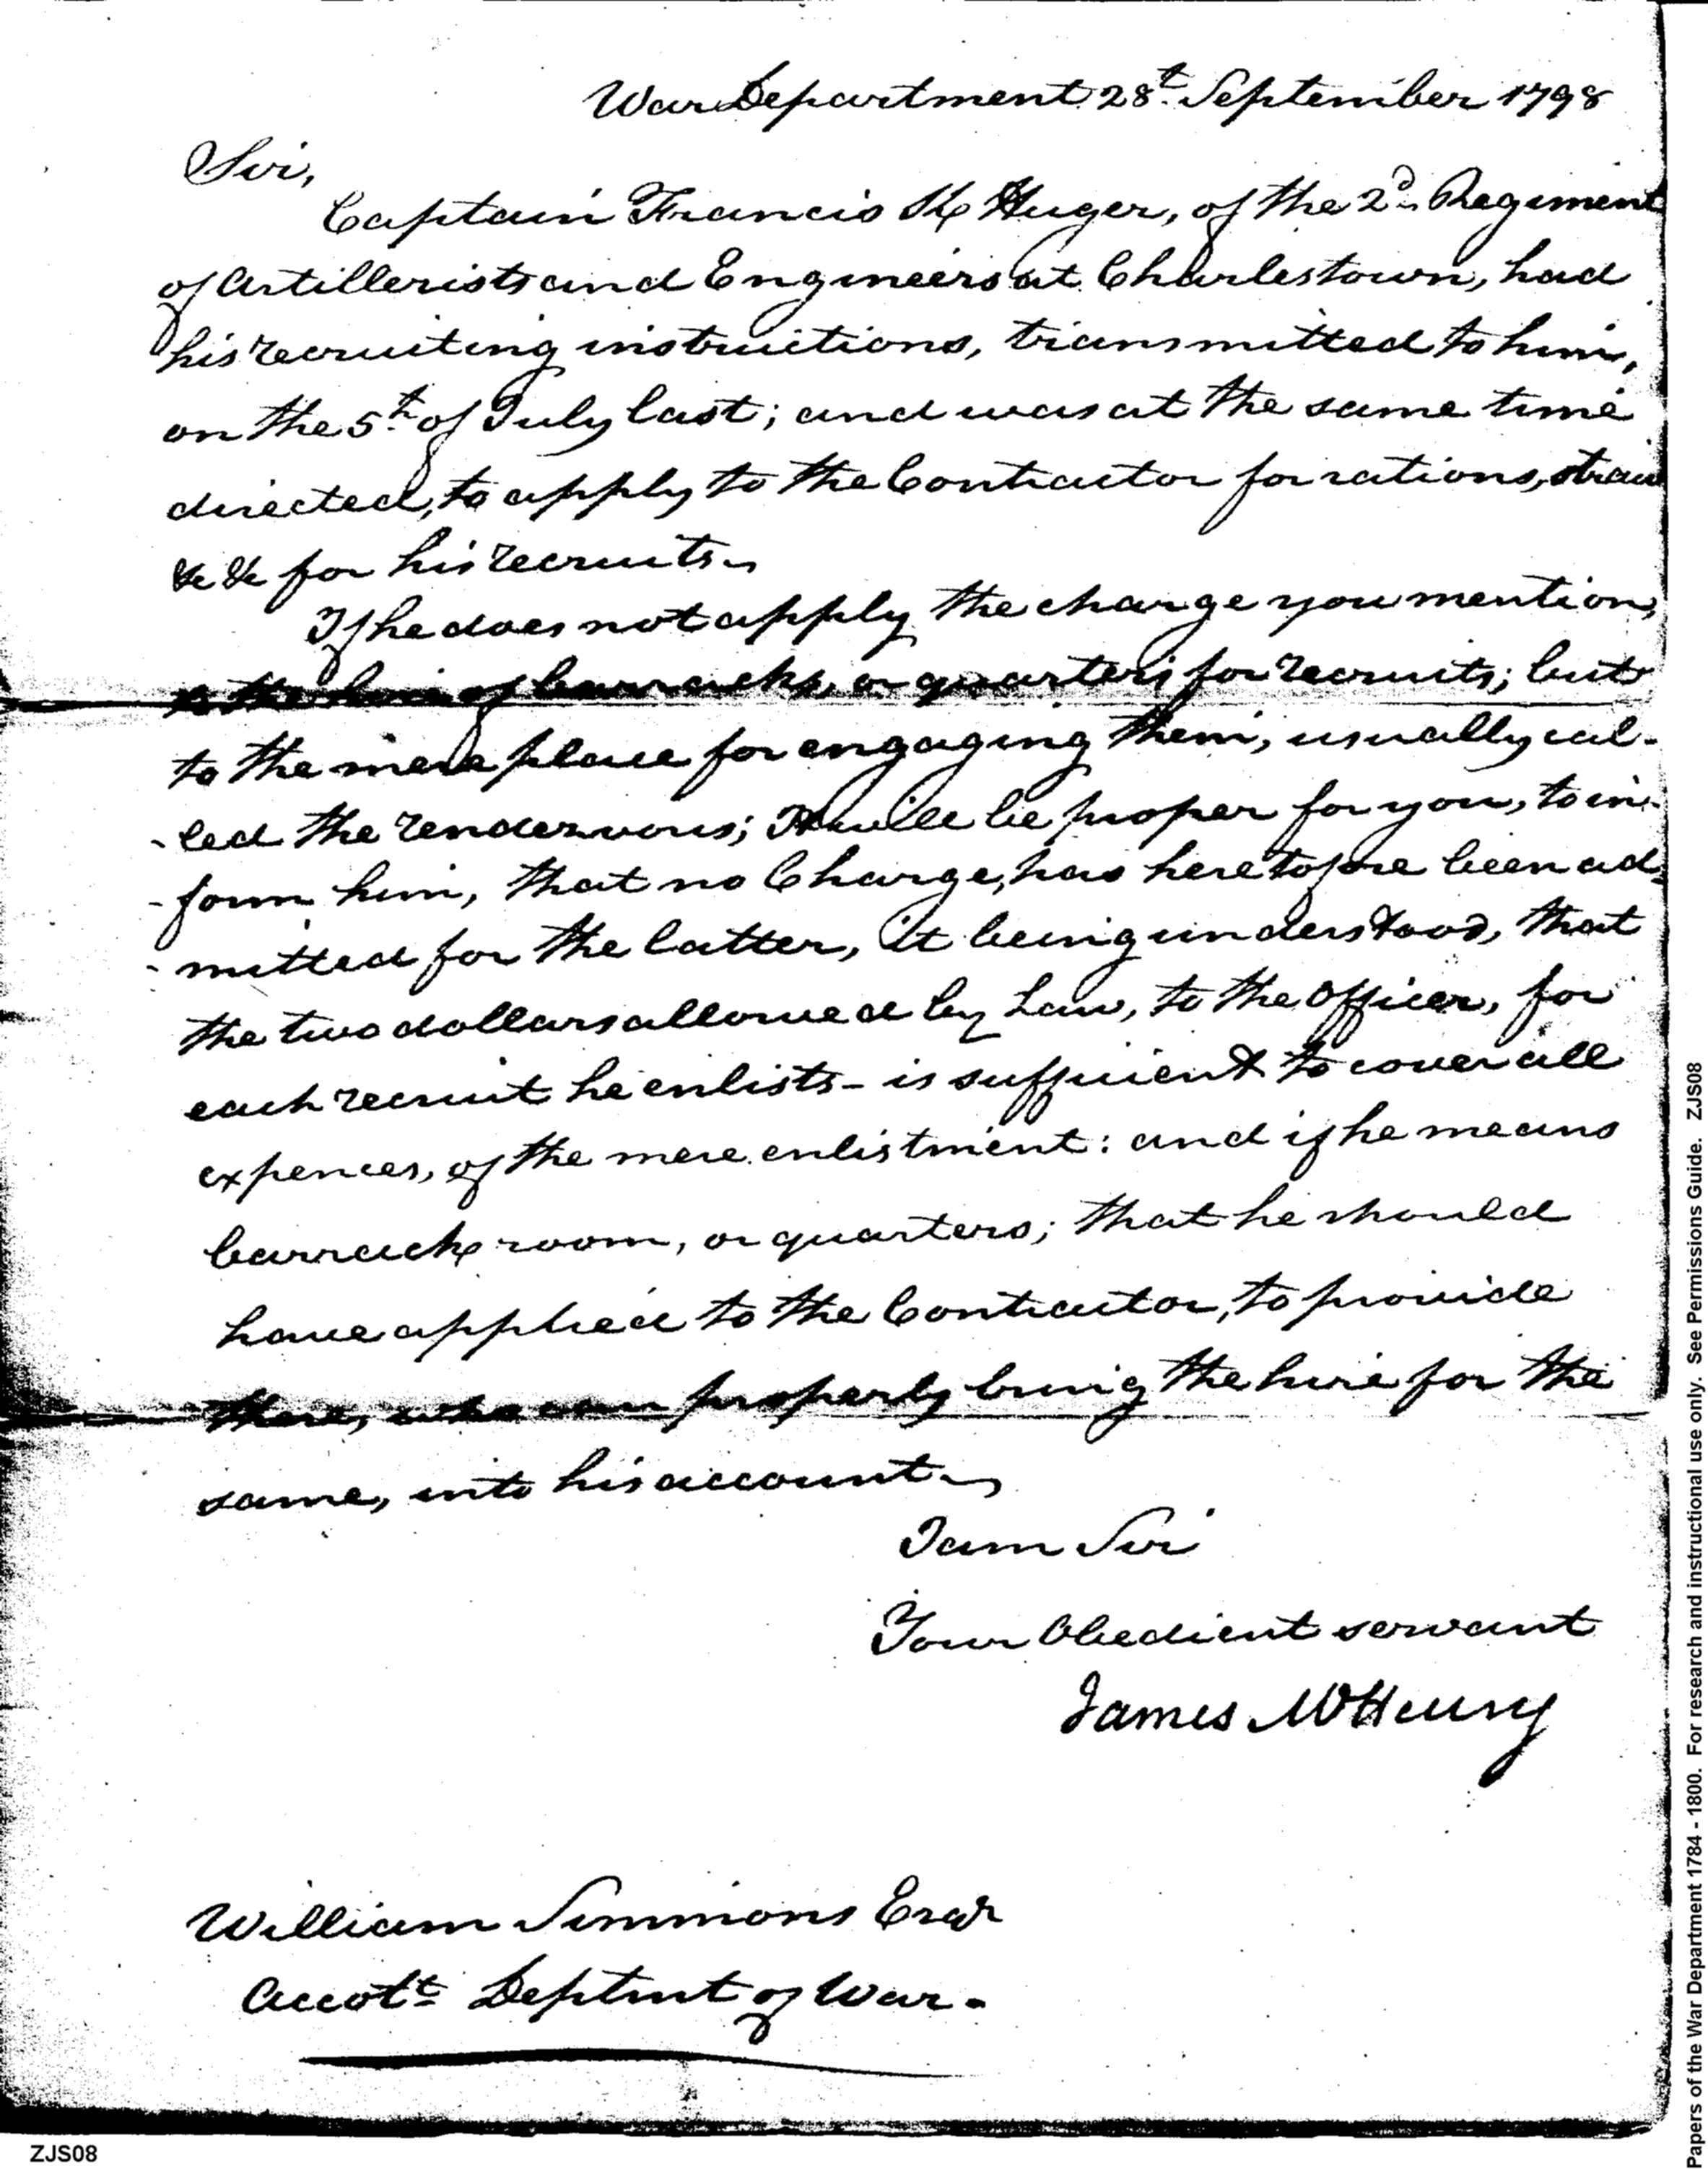 War Department 28t. September 1798
Sir,
Captain Francis K Huger, of the 2d. Regiment
of Artillerists and Engineers at Charlestown, had
his recruiting instructions, transmitted to him,
on the 5th of July last; and was at the same time
directed, to apply to the Contractor for rations, straw
&c &c for his recruits.
If he does not apply the charge you mention,
to the hire of barracks, or quarters for recruits; but
to the mere place for engaging them, usually cal-
-led the rendezvous; It will be proper for you, to in-
-form him, that no Charge, has heretofore been ad-
-mitted for the latter, it being understood, that
the two dollars allowed by Law, to the Officer, for
each recruit he enlists - is sufficient to cover all
expences, of the mere enlistment: and if he means
barrack room, or quarters; that he should
have applied to the Contractor, to provide
these, who can properly bring the hire for the
same, into his account.
I am Sir
Your Obedient servant
James McHenry
William Simmons Esqr
Accott. Deptmt of War.
ZJS08
Papers of the War Department 1784 - 1800. For research and instructional use only. See Permissions Guide. ZJS08